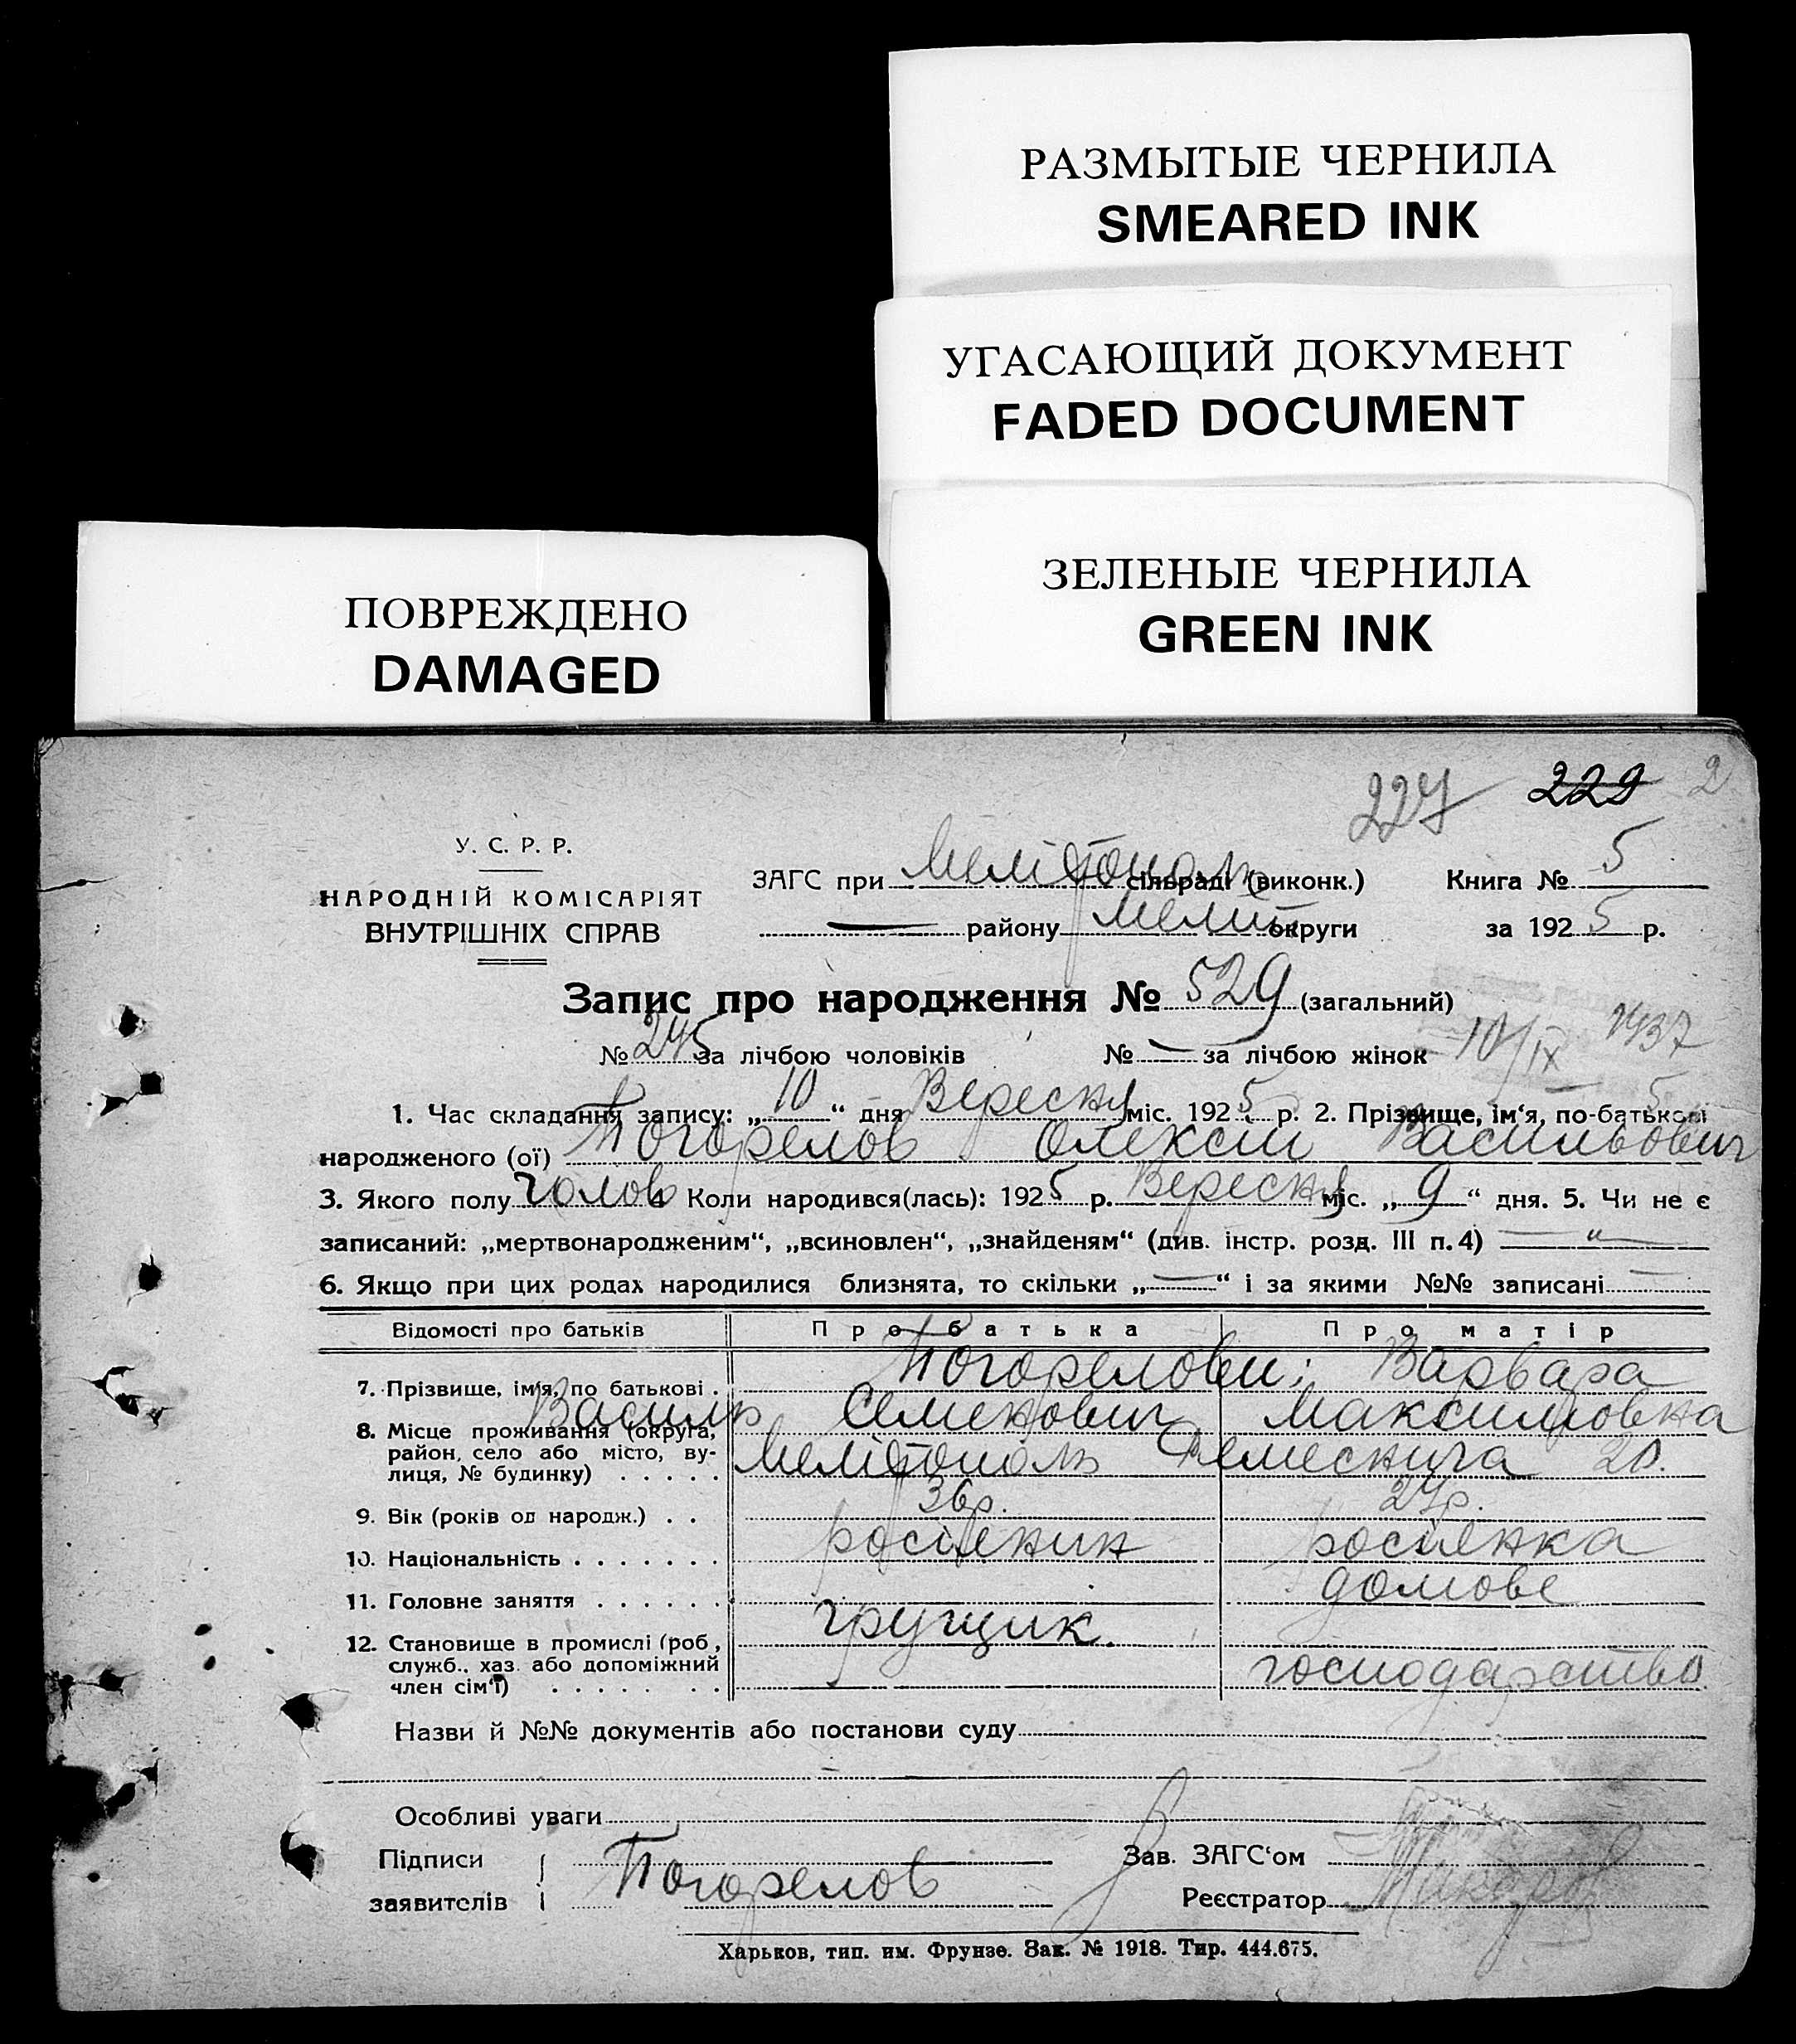 РАЗМЫТЫЕ ЧЕРНИЛА
SMEARED INK
УГАСАЮЩИЙ ДОКУМЕНТ
FADED DOCUMENT
ЗЕЛЕНЫЕ ЧЕРНИЛА
GREEN INK
ПОВРЕЖДЕНО
DAMAGED
227 229 2
У. С. Р. Р.
НАРОДНІЙ КОМІСАРІЯТ
ВНУТРІШНІХ СПРАВ
ЗАГС при Мелітополь сільраді (виконк.) Книга № 5
— району Мелит округи за 1925 р.
Запис про народження № 529 (загальний)
№ 245 за лічбою чоловіків № — за лічбою жінок 10/IX
1. Час складання запису: „10“ дня Вересня міс. 1925 р. 2. Прізвище, ім‘я, по-батькові
народженого (ої) Погорелов Олексій Васильович
3. Якого полу чолов 4 Коли народився(лась): 1925 р. Вересня міс. „9“ дня. 5. Чи не є
записаний: „мертвонародженим“, „всиновлен“, „знайденям“ (див. інстр. розд. III п. 4) — „ —
6. Якщо при цих родах народилися близнята, то скільки „—“ і за якими №№ записані —
Відомості про батьків Про батька Про матір
7. Прізвище, ім‘я, по батькові . Погорелови: Варвара
Василь Семенович Максимовна
8. Місце проживання (округа,
район, село або місто, ву-
лиця, № будинку) . . . . . Мелітополь 20.
9. Вік (років од народж.) . . 36р. 27р.
10. Національність . . . . . . . росіянин росіянка
11. Головне заняття . . . . . . домове
12. Становище в промислі (роб, грущик.
служб., хаз. або допоміжний
член сім‘ї) . . . . . . . господарство
Назви й №№ документів або постанови суду
Особливі уваги
Підписи Зав. ЗАГС‘ом
заявителів Погорелов Реєстратор
Харьков, тип. им. Фрунзе. Зак. № 1918. Тир. 444.675.